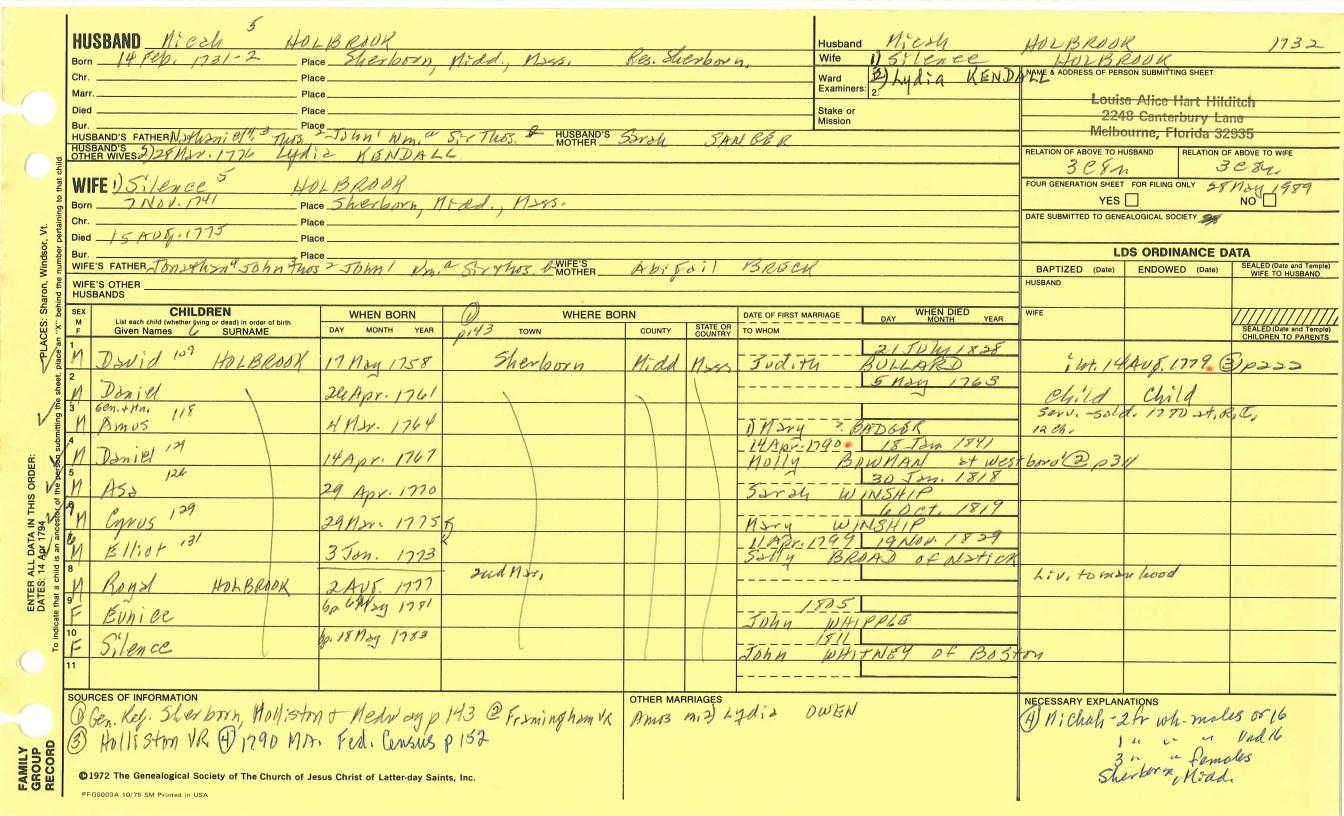 HUSBAND Micah 5 HOLBROOK
Born 14 Feb. 1731-2 Place Sherborn, Midd., Mass. Res. Sherborn.
Chr. Place
Marr. Place
Died Place
Bur. Place
HUSBAND'S FATHER Nathaniel 4, 3 Thos 2 John 1 Wm. a Sir Thos. HUSBAND'S MOTHER Sarah SANGER
HUSBAND'S OTHER WIVES 2) 28 Mar. 1776 Lydia KENDALL
Husband Micah HOLBROOK 1732
Wife 1) Silence HOLBROOK
Ward 2) Lydia KENDALL
Examiners: 2.
Stake or Mission
NAME & ADDRESS OF PERSON SUBMITTING SHEET
Louise Alice Hart Hilditch
2248 Canterbury Lane
Melbourne, Florida 32935
RELATION OF ABOVE TO HUSBAND RELATION OF ABOVE TO WIFE
3c8r 3c8r.
FOUR GENERATION SHEET FOR FILING ONLY 28 May 1989
YES NO
DATE SUBMITTED TO GENEALOGICAL SOCIETY
WIFE 1) Silence 5 HOLBROOK
Born 7 Nov. 1741 Place Sherborn, Midd., Mass.
Chr. Place
Died 15 Aug. 1775 Place
Bur. Place
WIFE'S FATHER Jonathan 4 John 3 Thos 2 John 1 Wm. a Sir Thos. b WIFE'S MOTHER Abigail BRECK
WIFE'S OTHER HUSBANDS
LDS ORDINANCE DATA
BAPTIZED (Date) ENDOWED (Date) SEALED (Date and Temple) WIFE TO HUSBAND
HUSBAND
WIFE
SEALED (Date and Temple) CHILDREN TO PARENTS
SEX M F CHILDREN WHEN BORN WHERE BORN DATE OF FIRST MARRIAGE WHEN DIED
List each child (whether living or dead) in order of birth
Given Names 6 SURNAME DAY MONTH YEAR 1 p143 TOWN COUNTY STATE OR COUNTRY TO WHOM DAY MONTH YEAR
1 M David 109 HOLBROOK 17 May 1758 Sherborn Midd Mass Judith BULLARD 21 July 1828 int. 14 Aug. 1779. 3 p222
2 M Daniel 26 Apr. 1761 5 May 1763 Child Child
3 M Gen. + Mn. Amos 118 4 Mar. 1764 1) Mary ?. BADGER Serv.-sold. 1780 at R.I., 12 Ch.
4 M Daniel 121 14 Apr. 1767 14 Apr. 1790 18 Jan 1841 Molly BOWMAN at Westboro' 2 p311
5 M Asa 126 29 Apr. 1770 30 Jan. 1818 Sarah WINSHIP
7 M Cyrus 129 29 Mar. 1775 6 Oct. 1819 Mary WINSHIP
6 M Elliot 131 3 Jan. 1773 11 Apr. 1799 19 Nov. 1829 Sally BROAD of Natick
2nd Mar.
8 M Royal HOLBROOK 2 Aug. 1777 Liv. to manhood
9 F Eunice bp. 6 May 1781 1805 John WHIPPLE
10 F Silence bp. 18 May 1783 1811 John WHITNEY of Boston
11
SOURCES OF INFORMATION
1 Gen. Reg. Sherborn, Holliston + Medway p 143 2 Framingham VR
3 Holliston VR 4 1790 MA. Fed. Census p 152
OTHER MARRIAGES
Amos m 2) Lydia OWEN
NECESSARY EXPLANATIONS
4 Michah - 2 fr wh. males or 16
1 " " " Und 16
3 " " females
Sherborn, Midd.
©1972 The Genealogical Society of The Church of Jesus Christ of Latter-day Saints, Inc.
PFGS003A 10/75 5M Printed in USA
FAMILY GROUP RECORD
ENTER ALL DATA IN THIS ORDER:
DATES: 14 Apr 1794 PLACES: Sharon, Windsor, Vt.
To indicate that a child is an ancestor of the person submitting the sheet, place an "X" behind the number pertaining to that child.